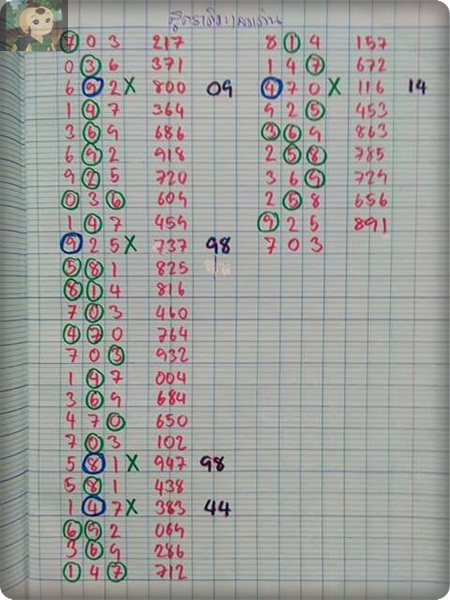 7 0 3 217
0 3 6 371
6 9 2 X 800 09
1 4 7 364
3 6 9 686
6 9 2 918
9 2 5 720
0 3 6 609
1 4 7 459
9 2 5 X 737 98
5 8 1 825
8 1 4 816
7 0 3 460
4 7 0 764
7 0 3 932
1 4 7 004
3 6 9 684
4 7 0 650
7 0 3 102
5 8 1 X 947 98
5 8 1 438
1 4 7 X 383 44
6 9 2 069
3 6 9 286
1 4 7 712
8 1 4 157
1 4 7 672
4 7 0 X 116 14
9 2 5 453
3 6 9 863
2 5 8 785
3 6 9 729
2 5 8 656
9 2 5 891
7 0 3